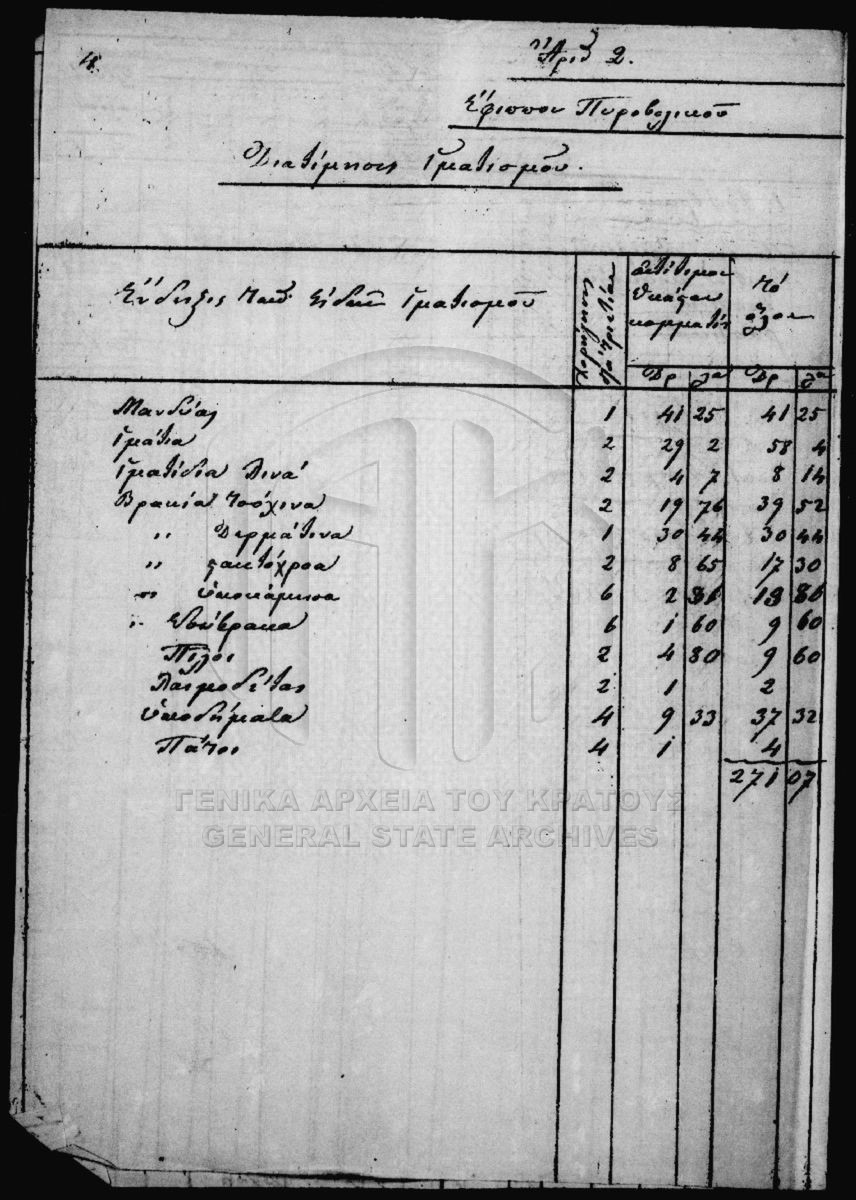 4.
Ἀριθ 2.
Ἐφίππου Πυροβολικοῦ
Διατίμησις Ἱματισμοῦ.
Ἔνδειξις τῶν Εἰδῶν Ἱματισμοῦ
διὰ τριετίαν
κομματίου
τό
ὅλον
Δρ λα Δρ λα
Μανδύας 1 41 25 41 25
Ἱμάτια 2 29 2 58 4
Ἱματίδια λινά 2 4 7 8 14
Βρακία τσόχινα 2 19 76 39 52
" Δερμάτινα 1 30 44 30 44
" γακτόχροα 2 8 65 17 30
" ὑποκάμισα 6 2 31 13 86
" Ἐσώβρακα 6 1 60 9 60
Πῖλοι 2 4 80 9 60
Λαιμοδέται 2 1 2
ὑποδήματα 4 9 33 37 32
Πάτοι 4 1 4
271 07
ΓΕΝΙΚΑ ΑΡΧΕΙΑ ΤΟΥ ΚΡΑΤΟΥΣ
GENERAL STATE ARCHIVES